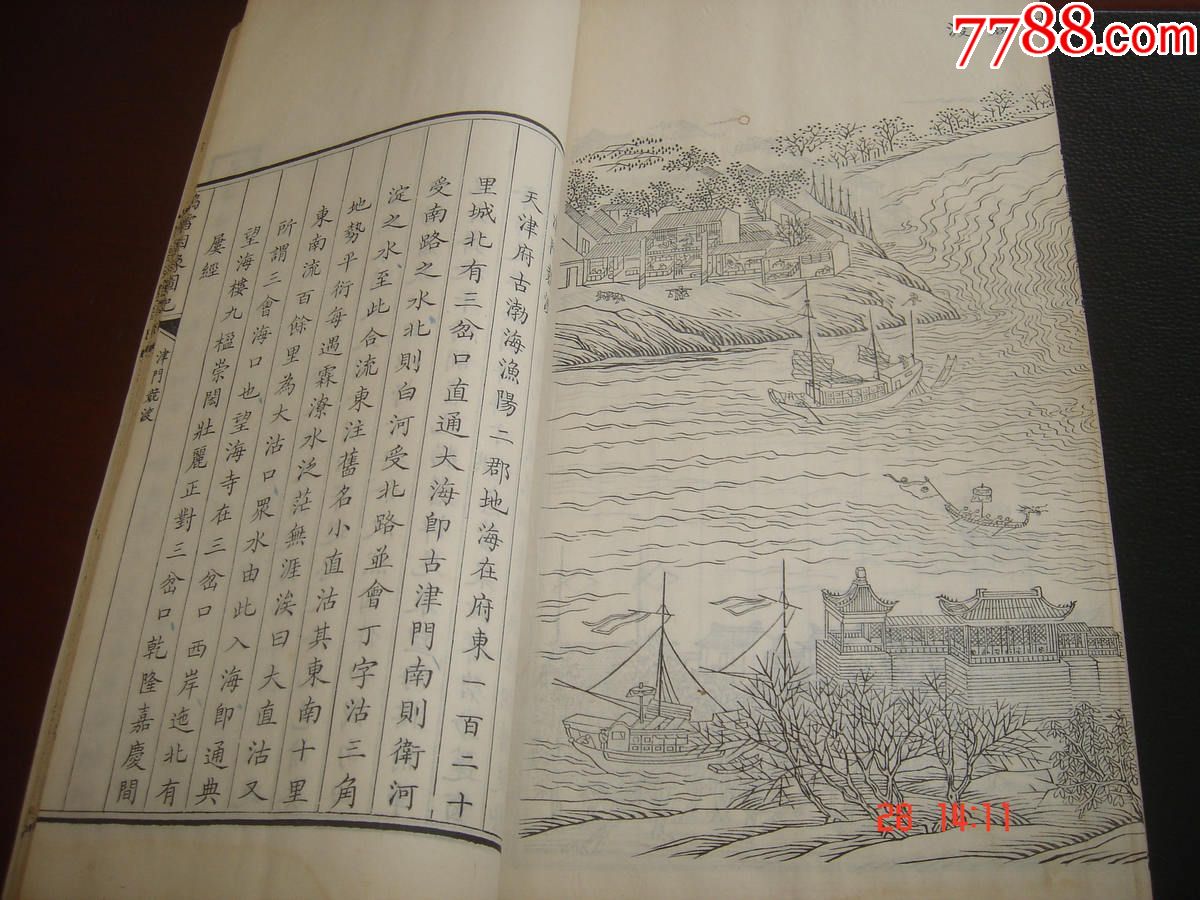 7788.com
天津府古渤海漁陽二郡地海在府東一百二十
里城北有三岔口直通大海卽古津門南則衛河
受南路之水北則白河受北路並會丁字沽三角
淀之水至此合流東注舊名小直沽其東南十里
地勢平衍每遇霖潦水泛茫無涯涘曰大直沽又
東南流百餘里為大沽口眾水由此入海卽通典
所謂三會海口也望海寺在三岔口西岸迤北有
望海樓九楹崇閎壯麗正對三岔口乾隆嘉慶間
屢經
津門競渡
28 14:11